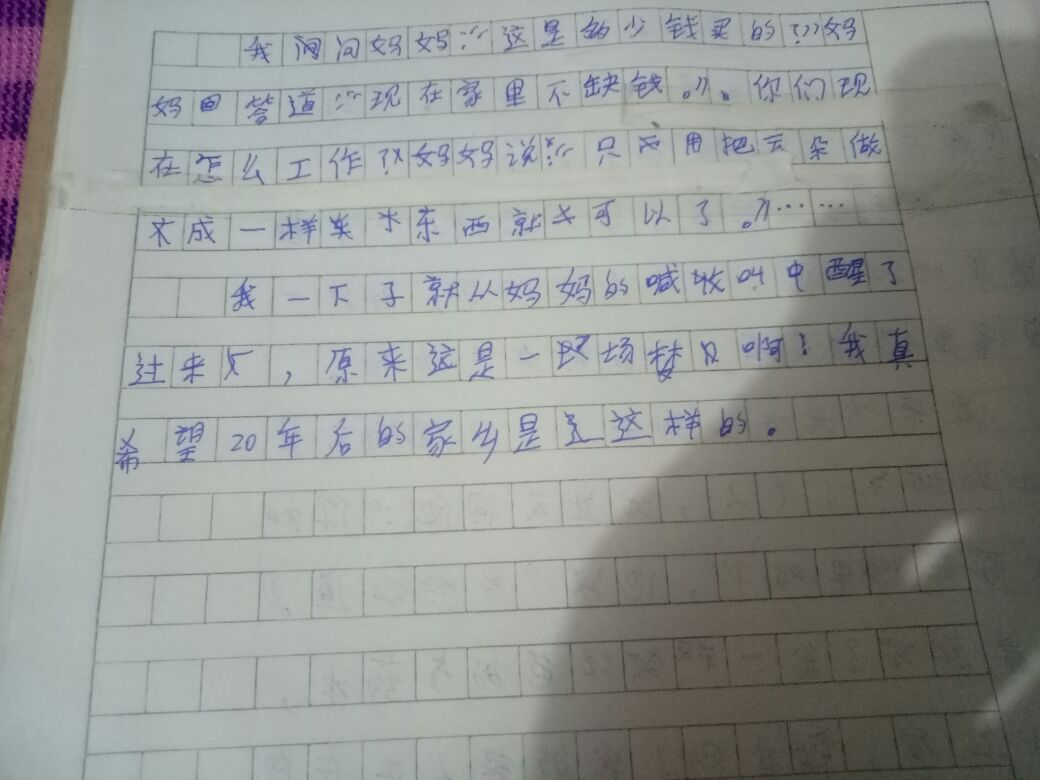 我问问妈妈:“这是多少钱买的?”妈
妈回答道:“现在家里不缺钱。”。你们现
在怎么工作?”妈妈说:“只用把云朵做
成一样东西就可以了。”……
我一下子就从妈妈的喊叫中醒了
过来,原来这是一场梦啊!我真
希望20年后的家乡是这样的。